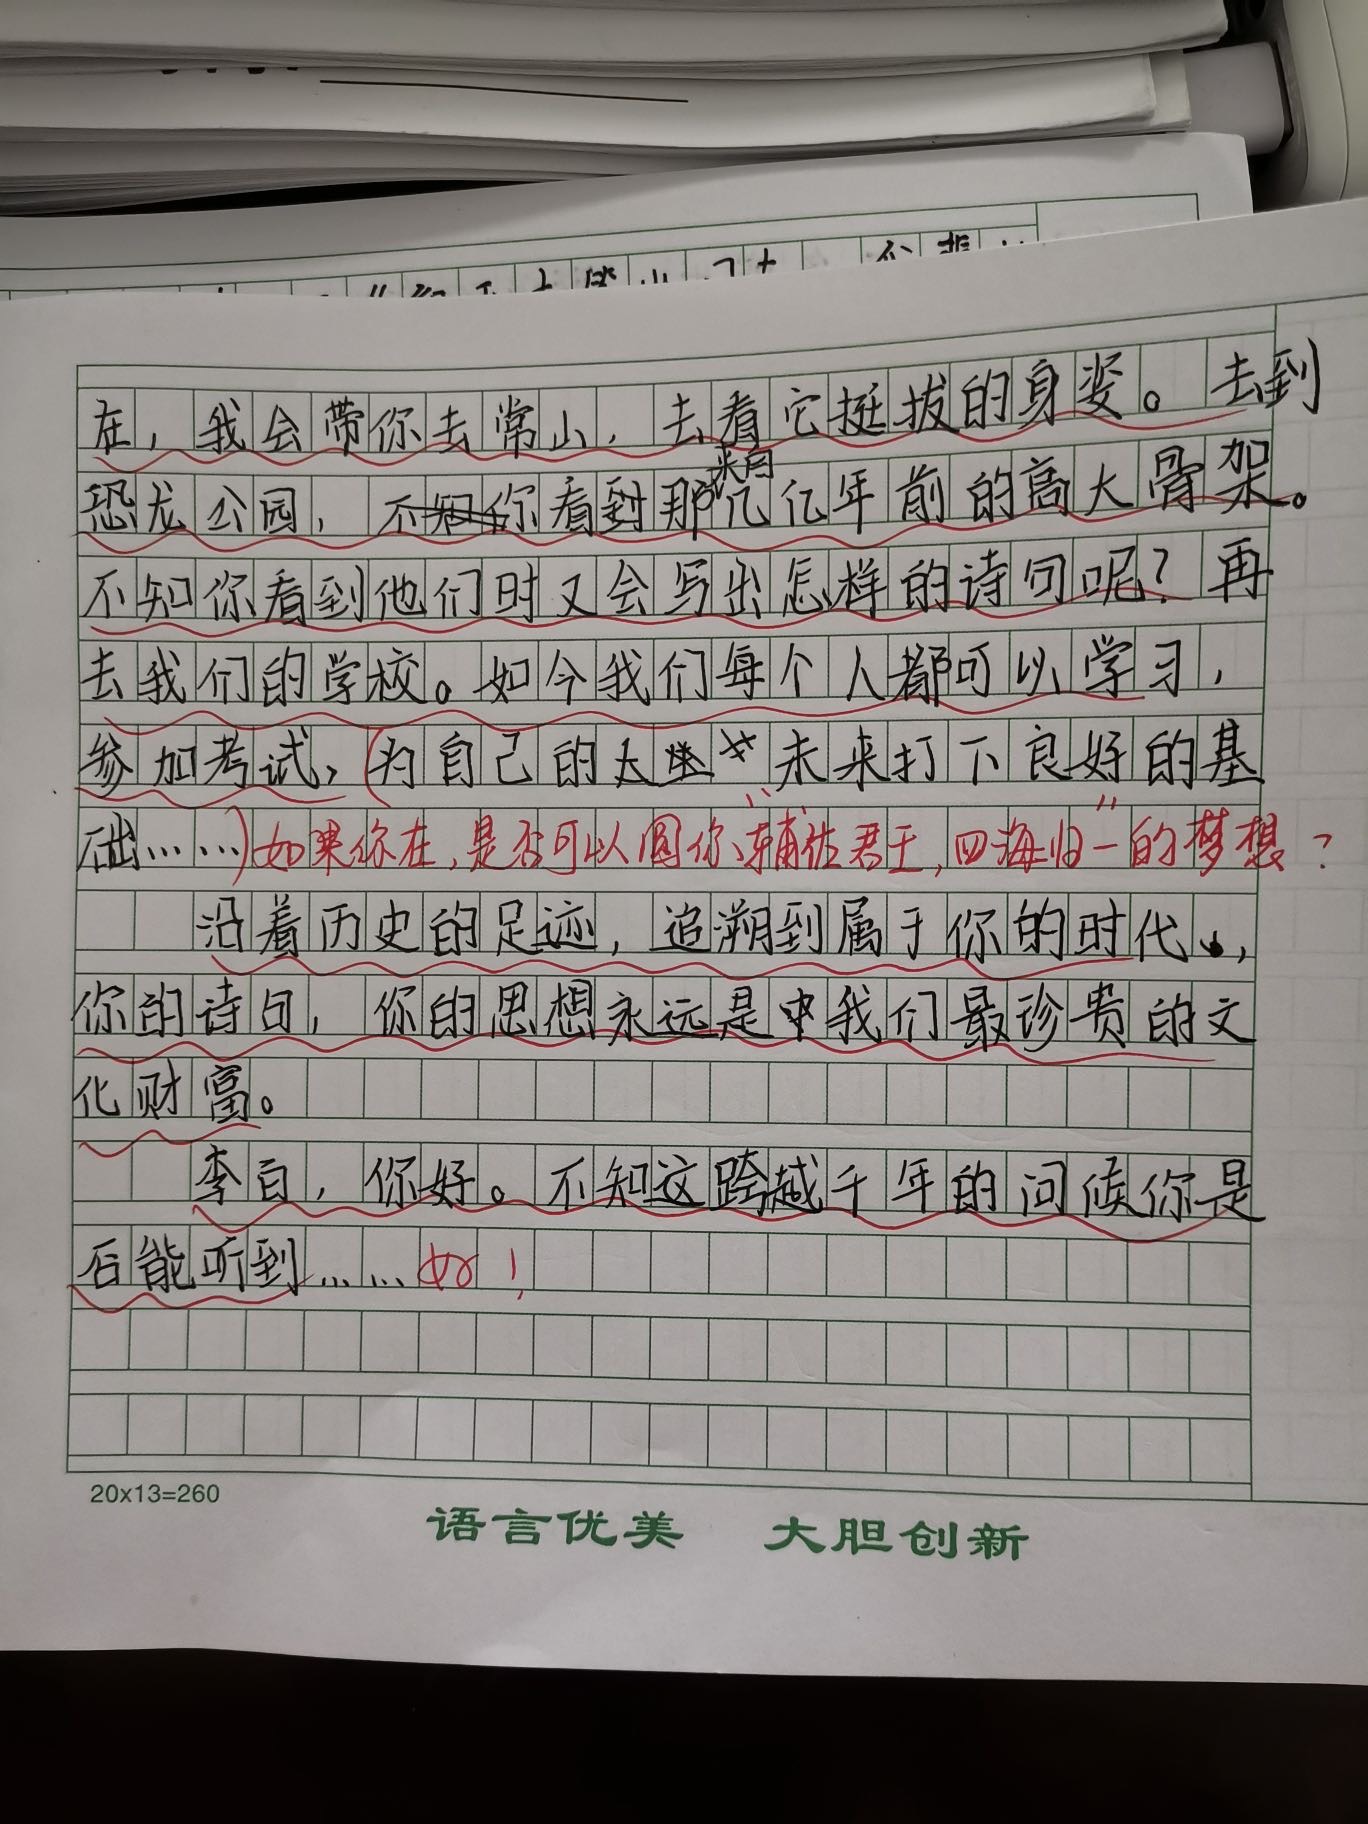 在，我会带你去常山，去看它挺拔的身姿。去到
恐龙公园，你看到那来自几亿年前的高大骨架。
不知你看到他们时又会写出怎样的诗句呢？再
去我们的学校。如今我们每个人都可以学习，
参加考试，(为自己的未来打下良好的基
础……)如果你在，是否可以圆你"辅佐君王，四海归一"的梦想？
沿着历史的足迹，追溯到属于你的时代，
你的诗句，你的思想永远是我们最珍贵的文
化财富。
李白，你好。不知这跨越千年的问候你是
否能听到……好！
20x13=260
语言优美 大胆创新